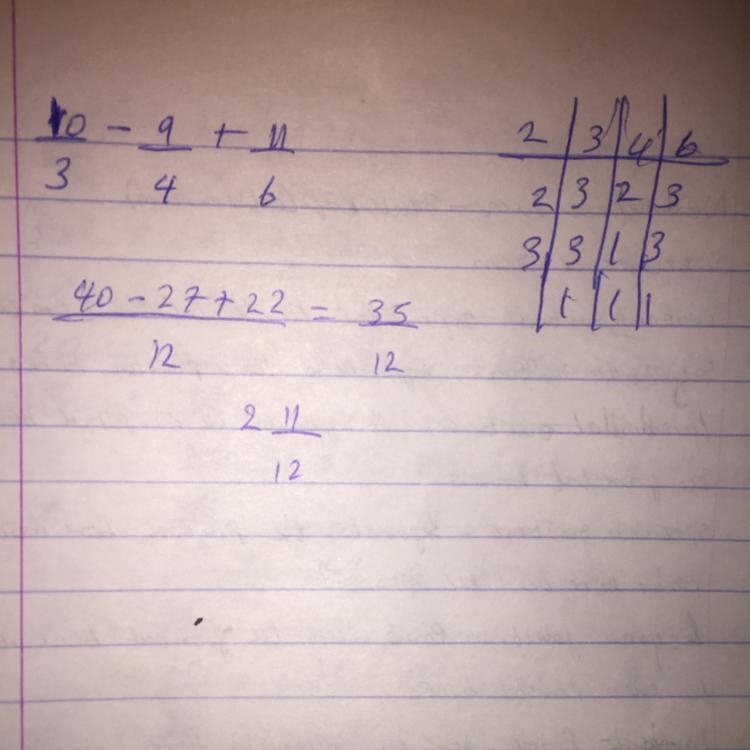 10 - 9 + 11
3 4 6
40 - 27 + 22 = 35
12 12
2 11
12
2 3 4 6
2 3 2 3
3 3 1 3
1 1 1